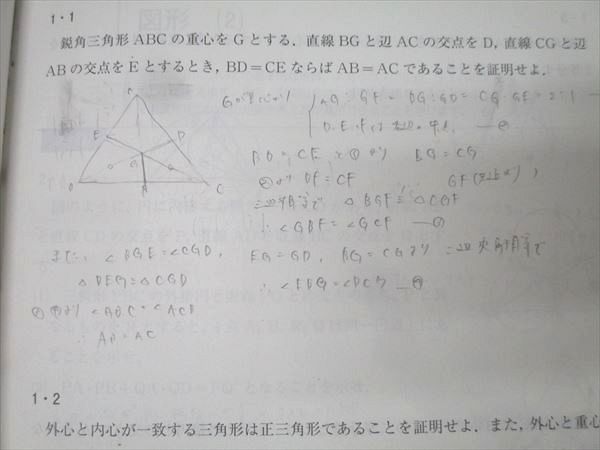 1・1
鋭角三角形 ABC の重心を G とする．直線 BG と辺 AC の交点を D, 直線 CG と辺
AB の交点を E とするとき, BD＝CE ならば AB＝AC であることを証明せよ．
AG:GF = BG:GD = CG:GE = 2:1
D. E. F は 各辺の中点
BD = CE と ① より BG = CG
②より BF = CF GF
△BGF ≡ △CGF
∴ ∠GBF = ∠GCF
また、 ∠BGE = ∠CGD, EG = GD, BG = CG より
△BEG ≡ △CGD ∴ ∠EBG = ∠DCG
∠ABC = ∠ACB
∴ AB = AC
1・2
外心と内心が一致する三角形は正三角形であることを証明せよ．また, 外心と重心